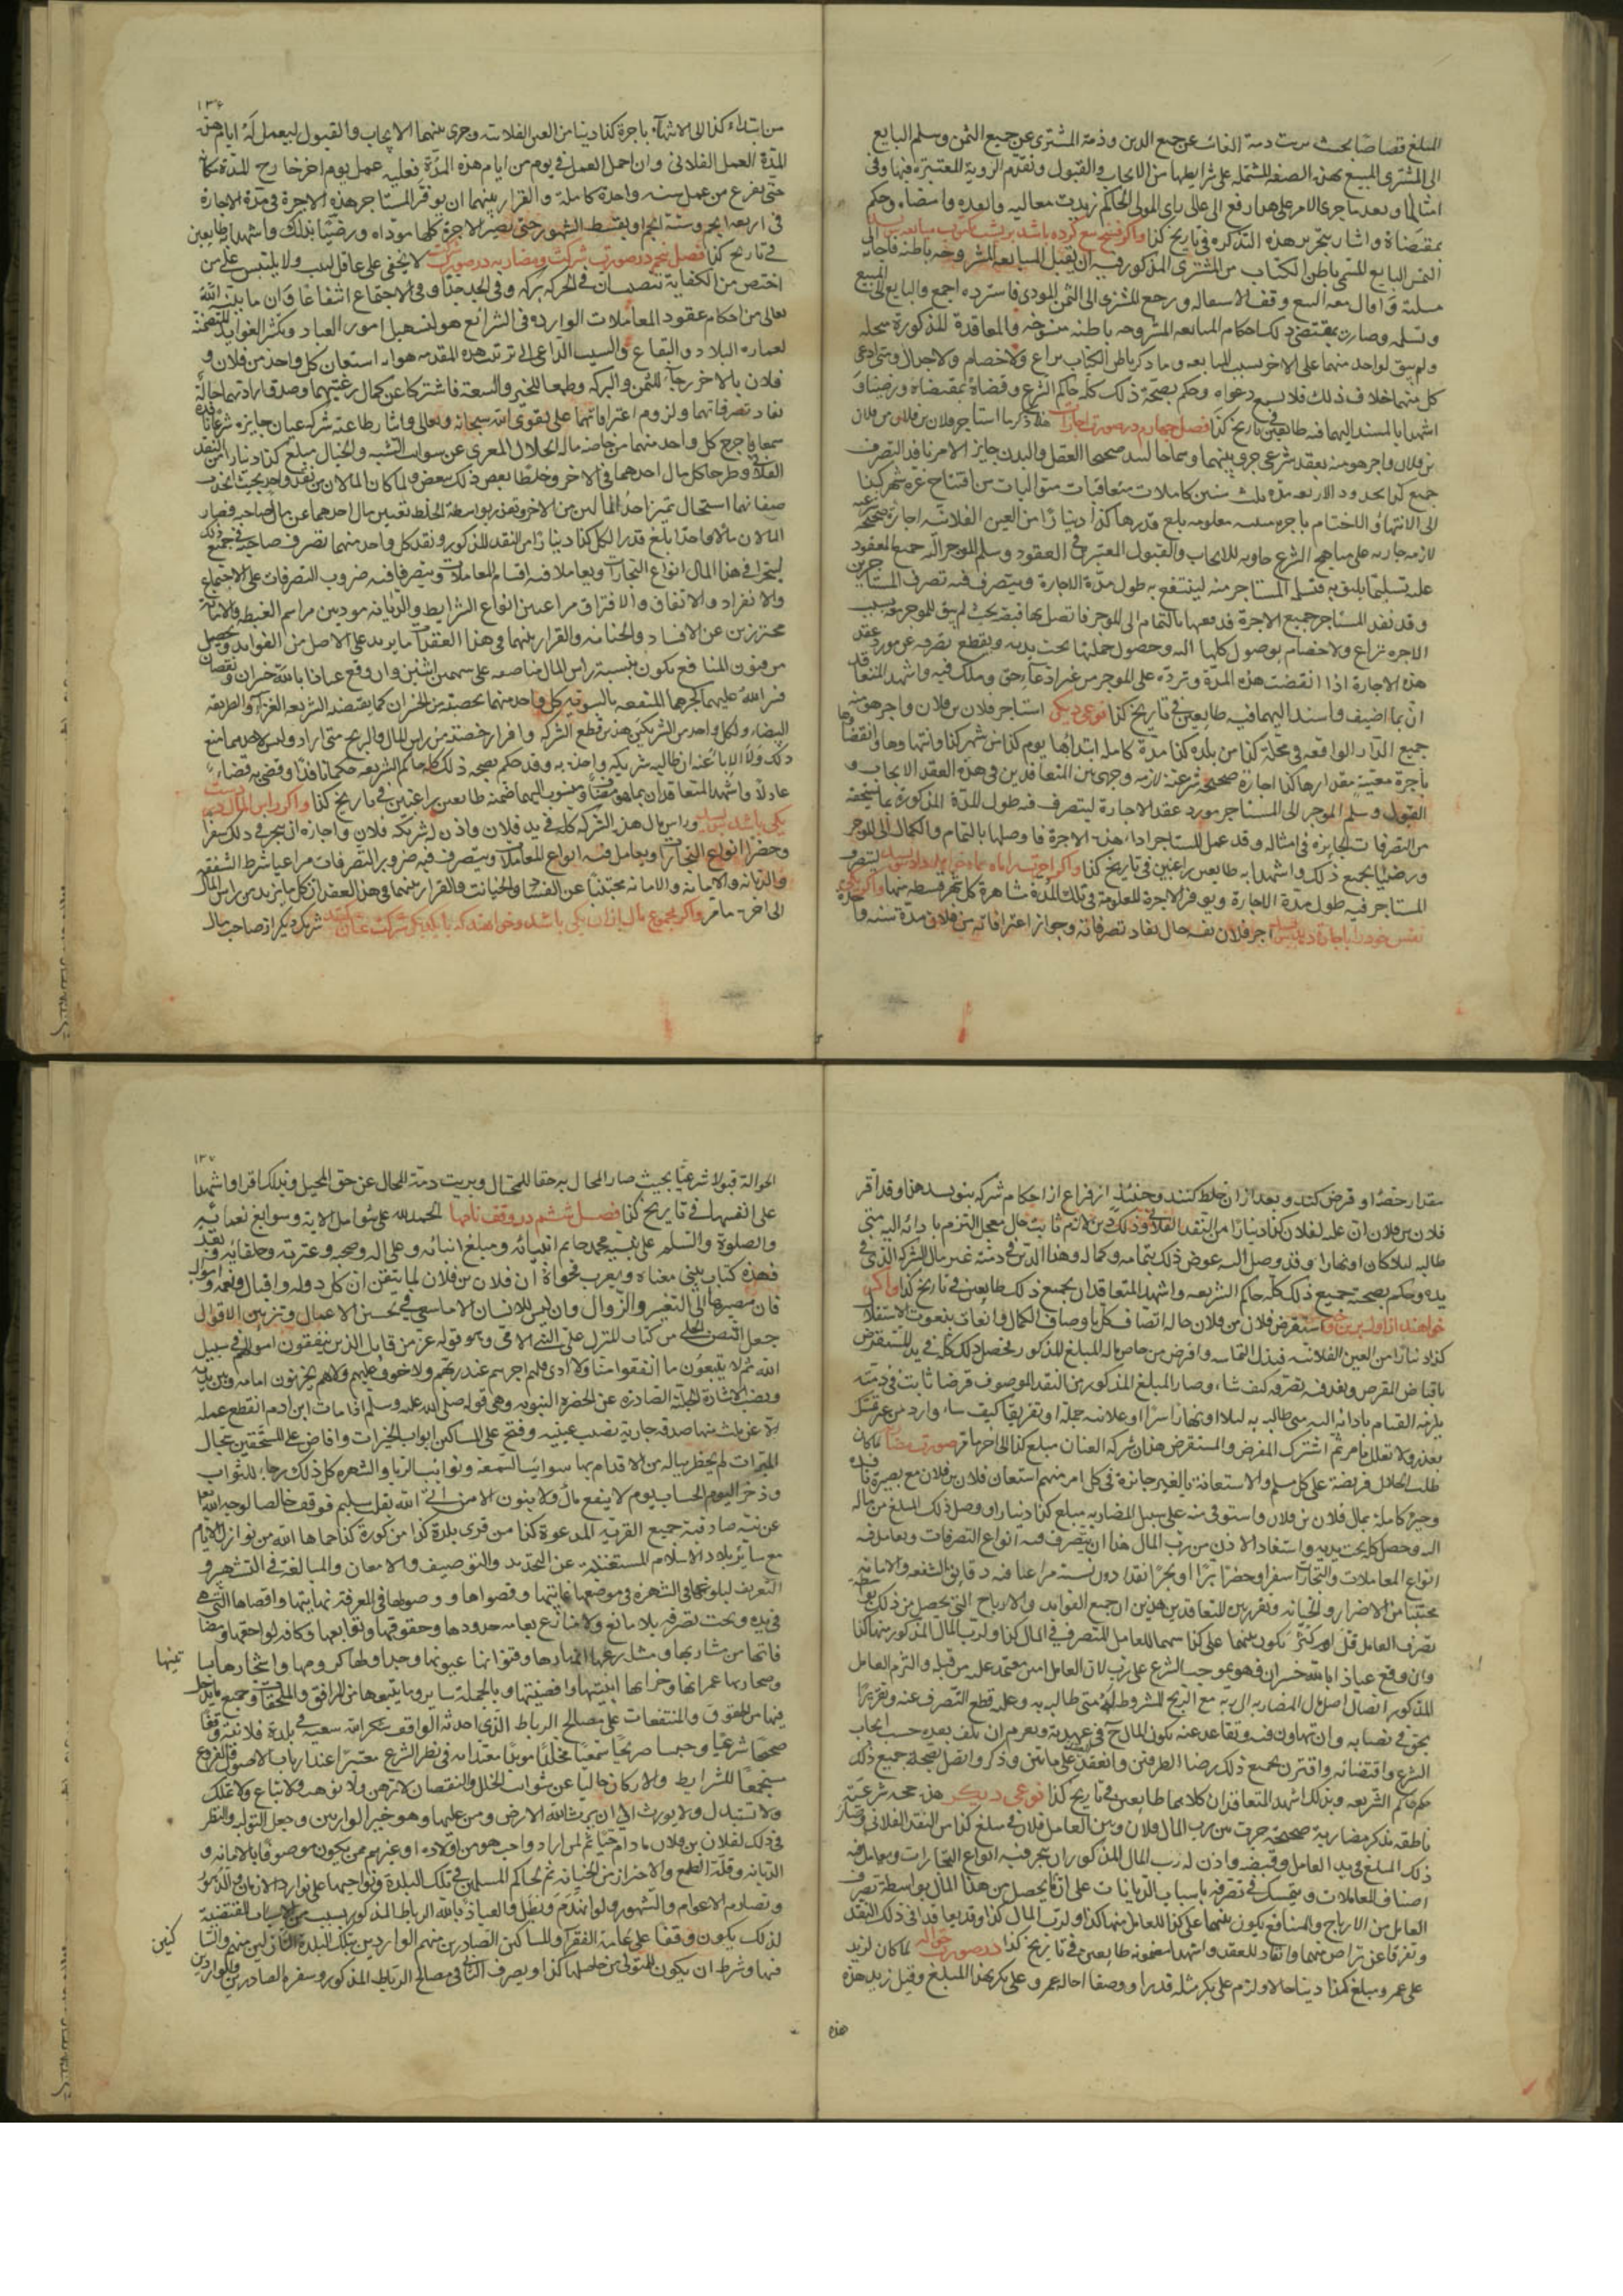 المبلغ قصاصا بحيث برئت ذمة الغائب عن جميع الدين وذمة المشترى عن جميع الثمن وسلم البايع
الى المشترى المبيع بهذه الصفة المشتمله على شرايطها من الايجاب والقبول وتقدم الروية المعتبرة فيها وفى
امثالها وبعد ما جرى الامر على هذا رفع الى عالى راى المولى الحاكم زيدت معاليه وانفده وامضاه وحكم
بمقتضاة واشار بتحرير هذه التذكره فى تاريخ كذا واكر فسخ بيع كرده باشد بر پشت كتاب مبايعه بنويسد
الثمن البايع المسمى باطن الكتاب من المشترى المذكور فيه ان يقبل المبايعه المشروحه باطنه فاجاب الى
وتسلمه وصارت بمقتضى ذلك احكام المبايعه المشروحه باطنه منسوخه والمعاقدة المذكورة
ولم يبق لواحد منهما على الاخر بسبب المبايعه وما ذكر باطن الكتاب نزاع ولا خصام ولا جدال ومتى ادعى
كل منهما خلاف ذلك فلا تسمع دعواه وحكم بصحة ذلك كله حاكم الشرع وقضاة بمقتضاة ورضيا و
اشهدا بالمسند اليهما فيه طائعين فى تاريخ كذا فصل چهارم در صورت اجارات هذا ذكر ما استاجر فلان بن فلان من فلان
بن فلان واجر هو منه بعقد شرعى جرى بينهما
جميع كذا بحدوده الاربعه مدة ثلث سنين كاملات متعاقبات متواليات من افتتاح غرة شهر كذا
الى الانتهاء والاختتام باجرة معلومه بلغ قدرها كذا دينارا من العين الفلانيه اجارة صحيحة
لازمه جاريه على مناهج الشرع حاويه للايجاب والقبول المعتبر فى العقود وسلم الموجر اليه جميع المعقود
عليه تسليما يليق به فتسلم المستاجر منه لينتفع به طول مدة الاجارة ويتصرف فيه تصرف المستاجرين
وقد نفد المستاجر جميع الاجرة فدفعها بالتمام الى الموجر فاتصل بها قبضه بحيث لم يبق للموجر معه بسبب
الاجره نزاع ولا خصام بوصول كلها اليه وحصول جملتها تحت يديه
هذه الاجارة اذا انقضت هذه المدة وترده على الموجر من غير ادعاء حق وملك فيه واشهد المتعاقدان
بما اضيف واسند اليهما فيه طايعين فى تاريخ كذا نوعى ديكر استاجر فلان بن فلان واجر هو منه
جميع الدار الواقعه فى محلة كذا من بلده كذا مدة كامله ابتداؤها يوم كذا من شهر كذا وانتهاؤها وانقضاؤها
باجرة معينة مقدارها كذا اجارة صحيحة شرعية لازمه وجرى بين المتعاقدين فى هذه العقد الايجاب و
القبول وسلم الموجر الى المستاجر مورد عقد الاجارة ليتصرف فيه طول المدة المذكورة
من التصرفات الجايزه فى امثاله وقد عمل المستاجر اداء هذه الاجرة فاوصلها بالتمام والكمال الى الموجر
ورضيا بجميع ذلك واشهدا به طايعين راغبين فى تاريخ كذا واكر اجرت را ماه بماه خواهد داد بنويسد ليتصرف
المستاجر فيه طول مدة الاجارة ويوفر الاجرة المعلومة فى تلك المدة مشاهرة كل شهر قسط منها واكر يكى
نفس خود را باجارة دهد بنويسد اجر فلان نفسه حال نفاد تصرفاته وجواز اعترافاته من فلان مدة سنه واحدة
١٣۶
من ابتداء كذا الى الانتهاء باجرة كذا دينارا من العين الفلانيه وجرى بينهما الايجاب والقبول ليعمل له ايام هذه
المدة العمل الفلانى وان اهمل العمل فى يوم من ايام هذه المدة فعليه عمل يوم اخر خارج المدة
حتى يفرغ من عمل سنه واحدة كاملة والقرار بينهما ان يوفر المستاجر هذه الاجرة فى مدة الاجارة
فى اربعه انجم وستة انجم او بقسط الشهور حتى تصير الاجرة كلها موداه ورضيا بذلك واشهدا به طايعين
فى تاريخ كذا فصل پنجم در صورت شركت ومضاربه در صورت شركت لا يخفى على عاقل لبيب ولا يلتبس على من
تعالى من احكام عقود المعاملات الوارده فى الشرائع هو لتسهيل امور العباد وتكثر الفوايد المتضمنة
لعمارة البلاد والبقاع والسبب الداعى الى ترتيب هذه المقدمه هو انه استعان كل واحد من فلان و
فلان بالاخر رجاء للثمن والبركه وطمعا للخير والسعة فاشتركا عن كمال رغبتهما وصدق ارادتهما حالة
نفاد تصرفاتهما ولزوم اعترافاتهما على تقوى الله سبحانه وتعالى واشار طاعته شركه عنان جايزه شرعا نافذه
سمعا باخرج كل واحد منهما من خاصة ماله الحلال المعرى عن شوائب الشبه والخيال مبلغ كذا دينار من النقد
الفلانى وطرحا كل مال احدهما فى الاخر وخلطا بعض ذلك ببعض
المالان مالا واحدا بلغ قدر الكل كذا دينارا من النقد المذكور ونفد كل واحد منهما تصرف صاحبه فى جميع ذلك
ليتجرا فى هذا المال انواع التجارات ويعاملا فيه اقسام المعاملات ويتصرفا فيه ضروب التصرفات على الاجتماع
والانفراد والاتفاق والافتراق مراعيين انواع الشرايط والديانه مودين مراسم الغبطه والامانة
محترزين عن الافساد والخيانه والقرار بينهما فى هذا العقد ان ما يزيد على الاصل من الفوايد ويحصل
من فنون المنافع يكون بنسبة راس المال مناصفه على سهمين اثنين وان وقع عياذا بالله خسران ونقصان
البيضاء ولكل واحد من الشريكين هذين قطع الشركه وافراز حصته من راس المال والربح متى اراد
عادلا واشهد المتعاقدان بما هو مضاف ومنسوب اليهما ضمنه طايعين راغبين فى تاريخ كذا واكر راس المال در دست
يكى باشد بنويسد وراس مال هذه الشركه كله فى يد فلان واذن له شريكه فلان واجازه ان يتجر فى ذلك سفرا
وحضرا انواع التجارات ويعامل فيه انواع المعاملات ويتصرف فيه ضروب التصرفات مراعيا شرط الشفقه
والديانه والامانه مجتنبا عن الفساد والخيانات والقرار بينهما فى هذا العقد ان كل ما يزيد من راس المال
الى اخره ما مر واكر مجموع مال از ان يكى باشد وخواهند كه با يكديكر شركت عنان كنند شريك ديكر از صاحب مال
مقدار حصه او قرض كند وبعد از ان خلط كنند وحينئذ از فراغ از احكام شركه بنويسد هذا وقد اقر
فلان بن فلان ان عليه لفلان كذا دينارا من النقد الفلانى وذلك دين لازم ثابت حال معجل التزم بادائه اليه متى
طالبه ليلا كان او نهارا وقد وصل اليه عوض ذلك بتمامه وكماله وهذا الدين فى ذمته غير مال الشركه الذى فى
يده وحكم بصحة جميع ذلك كله حاكم الشريعه واشهد المتعاقدان بجميع ذلك طايعين فى تاريخ كذا واكر
استقرض فلان من فلان حالة اتصاف كل باوصاف الكمال
كذا دينارا من العين الفلانيه فبذل التماسه واقرض من خاص ماله المبلغ المذكور فحصل ذلك كله فى يد المستقرض
باقباض المقرض ونفد فيه تصرفه كيف شاء وصار المبلغ المذكور من النقد الموصوف قرضا ثابتا فى ذمته
يلزمه القيام بادائه اليه متى طالبه به ليلا او نهارا سرا او علانيه جملة او تفريقا كيف شاء
بعذر ولا تعلل بامر ثم اشترك المقرض والمستقرض هذان شركه العنان مبلغ كذا الى اخر ما مر صورت مضاربه لما كان
طلب الحلال فريضة على كل مسلم والاستعانة بالغير جايزة فى كل امر منهم استعان فلان بن فلان مع بصيرة نافذه
وخبرة كاملة بمال فلان بن فلان واستوفى منه على سبيل المضاربه مبلغ كذا دينارا ووصل ذلك المبلغ من ماله
اليه وحصل كله تحت يديه واستفاد الاذن من رب المال هذا ان يتصرف فيه انواع التصرفات ويعامل فيه
انواع المعاملات والتجارات سفرا وحضرا برا او بحرا نقدا دون نسيه مراعيا فيه دقائق الشفقه والامانه
مجتنبا من الاضرار والخيانه وتقرر بين المتعاقدين هذين ان جميع الفوايد والارباح التى تحصل من ذلك بواسطه
تصرف العامل قل او كثر يكون بينهما على كذا سهما للعامل المتصرف فى المال كذا ولرب المال المذكور منها كذا
وان وقع عياذا بالله خسران فهو بموجب الشرع على رب المال لان العامل امين معتمد عليه من قبله والتزم العامل
المذكور ايصال اصل مال المضاربه الى ربه مع الربح المشروط له متى طالبه به وعليه قطع التصرف عنه
الشرع واقتضائه واقترن بجميع ذلك رضا الطرفين وانعقد على ما بين وذكر واتصل بصحة جميع ذلك
حكم حاكم الشريعه وبذلك اشهد المتعاقدان كلاهما طايعين فى تاريخ كذا نوعى ديكر هذه حجه شرعية
ناطقه بذكر مضاربة صحيحة جرت بين رب المال فلان وبين العامل فلان فى مبلغ كذا من النقد الفلانى وصار
ذلك المبلغ فى يد العامل وقبضه واذن له رب المال المذكور ان يتجر فيه انواع التجارات ويعامل فيه
اصناف المعاملات ويتمسك فى تصرفه باسباب الديانات على ان ما يحصل من هذا المال بواسطة تصرف
العامل من الارباح والمنافع يكون بينهما على كذا للعامل منها كذا ولرب المال كذا
وتفرقا عن تراض منهما وانفاد للعقد واشهدا بمضمونه طايعين فى تاريخ كذا در صورت حواله لما كان لزيد
على عمرو مبلغ كذا دينارا حالا ولزم على بكر مثله قدرا ووصفا احاله عمرو على بكر بهذا المبلغ وقبل زيد هذه
هذه
١٣٧
الحوالة قبولا شرعيا بحيث صار المحال به حقا للمحتال وبريت ذمة المحال عن حق المحيل وبذلك اقرا واشهدا
على انفسهما فى تاريخ كذا فصل ششم در وقف نامها الحمد لله على شوامل الائه وسوابغ نعمائه
والصلوة والسلم على نبيه محمد خاتم انبيائه ومبلغ انبائه وعلى اله وصحبه وعترته وخلفائه وبعد
فهذه كتاب ينبى معناه ويعرب فحواة ان فلان بن فلان لما تيقن ان كل دوله واقبال ونعمه واموال
فان مصيرها الى التغير والزوال وان ليس للانسان الا ما سعى فى تحسين الاعمال وتزيين الاقوال
جعل النص الجلى من كتاب المنزل على النبى الامى وهو قوله عز من قايل الذين ينفقون اموالهم فى سبيل
الله ثم لا يتبعون ما انفقوا منا ولا اذى فلهم اجرهم عند ربهم ولا خوف عليهم ولا هم يحزنون امامه وبين يديه
ونصب الاشارة الجلية الصادرة عن الحضره النبويه وهى قوله صلى الله عليه وسلم اذا مات ابن ادم انقطع عمله
الا عن ثلث منها صدقه جارية نصب عينيه وفتح على المساكين ابواب الخيرات وافاض على المستحقين سجال
المبرات لم يخطر بباله من الاقدام بها شوائب السمعة ونوائب الريا والشهره كل ذلك رجاء للثواب
وذخرا ليوم الحساب يوم لا ينفع مال ولا بنون الا من اتى الله بقلب سليم فوقف خالصا لوجه الله تعالى
عن نية صادقة جميع القريه المدعوة كذا من قرى بلدة كذا من كورة كذا حماها الله من نوازل الايام
مع سائر بلاد الاسلام المستغنية عن التحديد والتوصيف والامعان والمبالغة فى التشهير و
التعريف لبلوغها فى الشهرة فى موضعها غايتها وقصواها ووصولها فى المعرفة نهايتها واقصاها التى هى
فى يده وتحت تصرفه بلا مانع ولا منازع بعامه حدودها وحقوقها وتوابعها وكافه لواحقها ومضا
فاتها من مشاربها ومشارعها انهارها وقنواتها عيونها وجداولها كرومها واشجارها
وصحاريها عمرانها وخرابها ابنيتها وافضيتها وبالجملة ساير ما يتبعها من المرافق والملحقات
فيها من الحقوق والمنتفعات على مصالح الرباط الذى احدثه الواقف شكر الله سعيه فى بلدة فلانيه وقفا
صحيحا شرعيا وحبسا صريحا سمعيا مخلدا موبدا معتدا به فى نظر الشرع معتبرا عند ارباب الاصول والفروع
مستجمعا للشرايط والاركان خاليا عن شوائب الخلل والنقصان لا ترهن ولا توهب ولا تباع ولا تملك
ولا تستبدل ولا يورث الى ان يرث الله الارض ومن عليها وهو خير الوارثين وجعل التوليه والنظر
فى ذلك لفلان بن فلان ما دام حيا ثم لمن اراد واحب هو من اولاده او غيرهم ممن يكون موصوفا بالامانه و
الديانه وقلة الطمع والاحتراز من الخيانة ثم لحاكم المسلمين فى تلك البلدة ونواحيها على توارد الازمان والدهور
وتصارم الاعوام والشهور ولو انهدم وتعطل والعياذ بالله الرباط المذكور بسبب من الاسباب المقتضية
لذلك يكون وقفا على عامة الفقراء والمساكين الصادرين منهم الواردين بتلك البلدة
فيها وشرط ان يكون للمتولى من حاصلها كذا ويصرف الباقى مصالح الرباط المذكور وسفره الصادرين والواردين